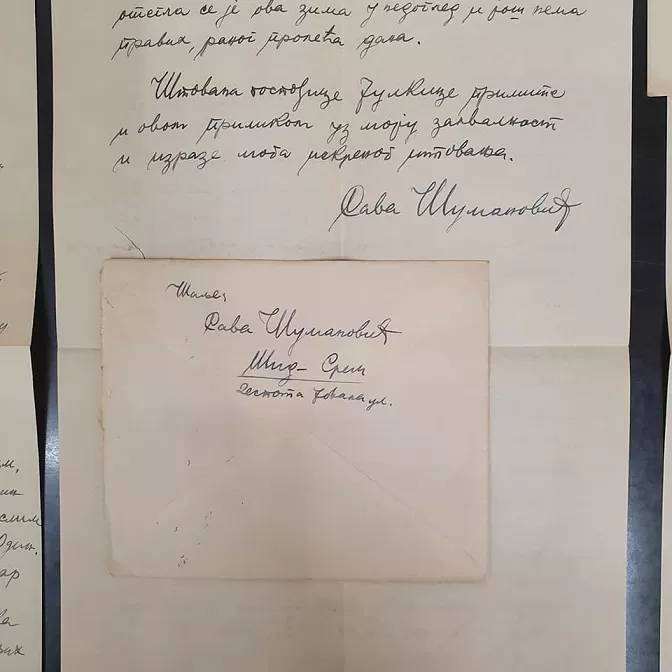 отегла се је ова зима у недоглед и још нема
правих, раног пролећа дана.
Штована госпођице Јулкице примите
и овом приликом уз моју захвалност
и изразе мога искреног штовања.
Сава Шумановић
Шаље,
Сава Шумановић
Шид – Срем
Деспота Јована ул.